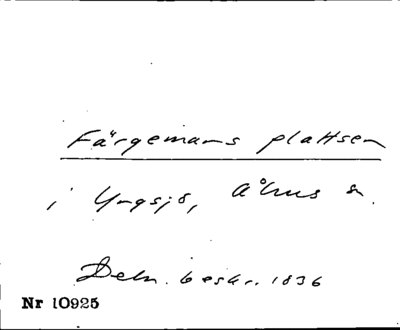 Färgemans plattsen
i Yngsjö, Åhus sn.
Deln. beskr. 1836
Nr 10925